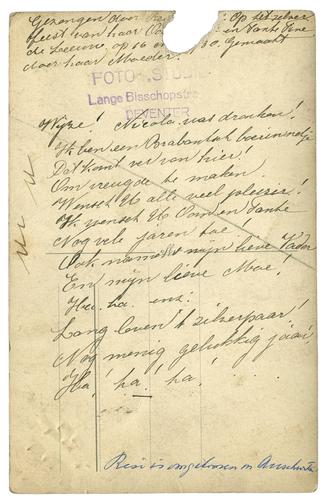 Gezongen door : Op het zilver
feest van haar Oom en Tante Line
de Leeuw, op 16 30. Gemaakt
door haar Moeder!
FOTO - STUD
Lange Bisschopstra
DEVENTER
Wijze! Nicola was dronken!
Ik ben een Brabantsch boerinnetje
Dat komt ver van hier!
Om vreugde te maken.
Wensch U alle veel plezier!
Ik wensch U Oom en Tante
Nog vele jaren toe
Ook namens mijn lieve Vader
En mijn lieve Moe!
Ha. ha. enz!
Lang leven 't zilverpaar!
Nog menig gelukkig jaar
Ha! ha! ha!
is omgekomen in Auschwitz